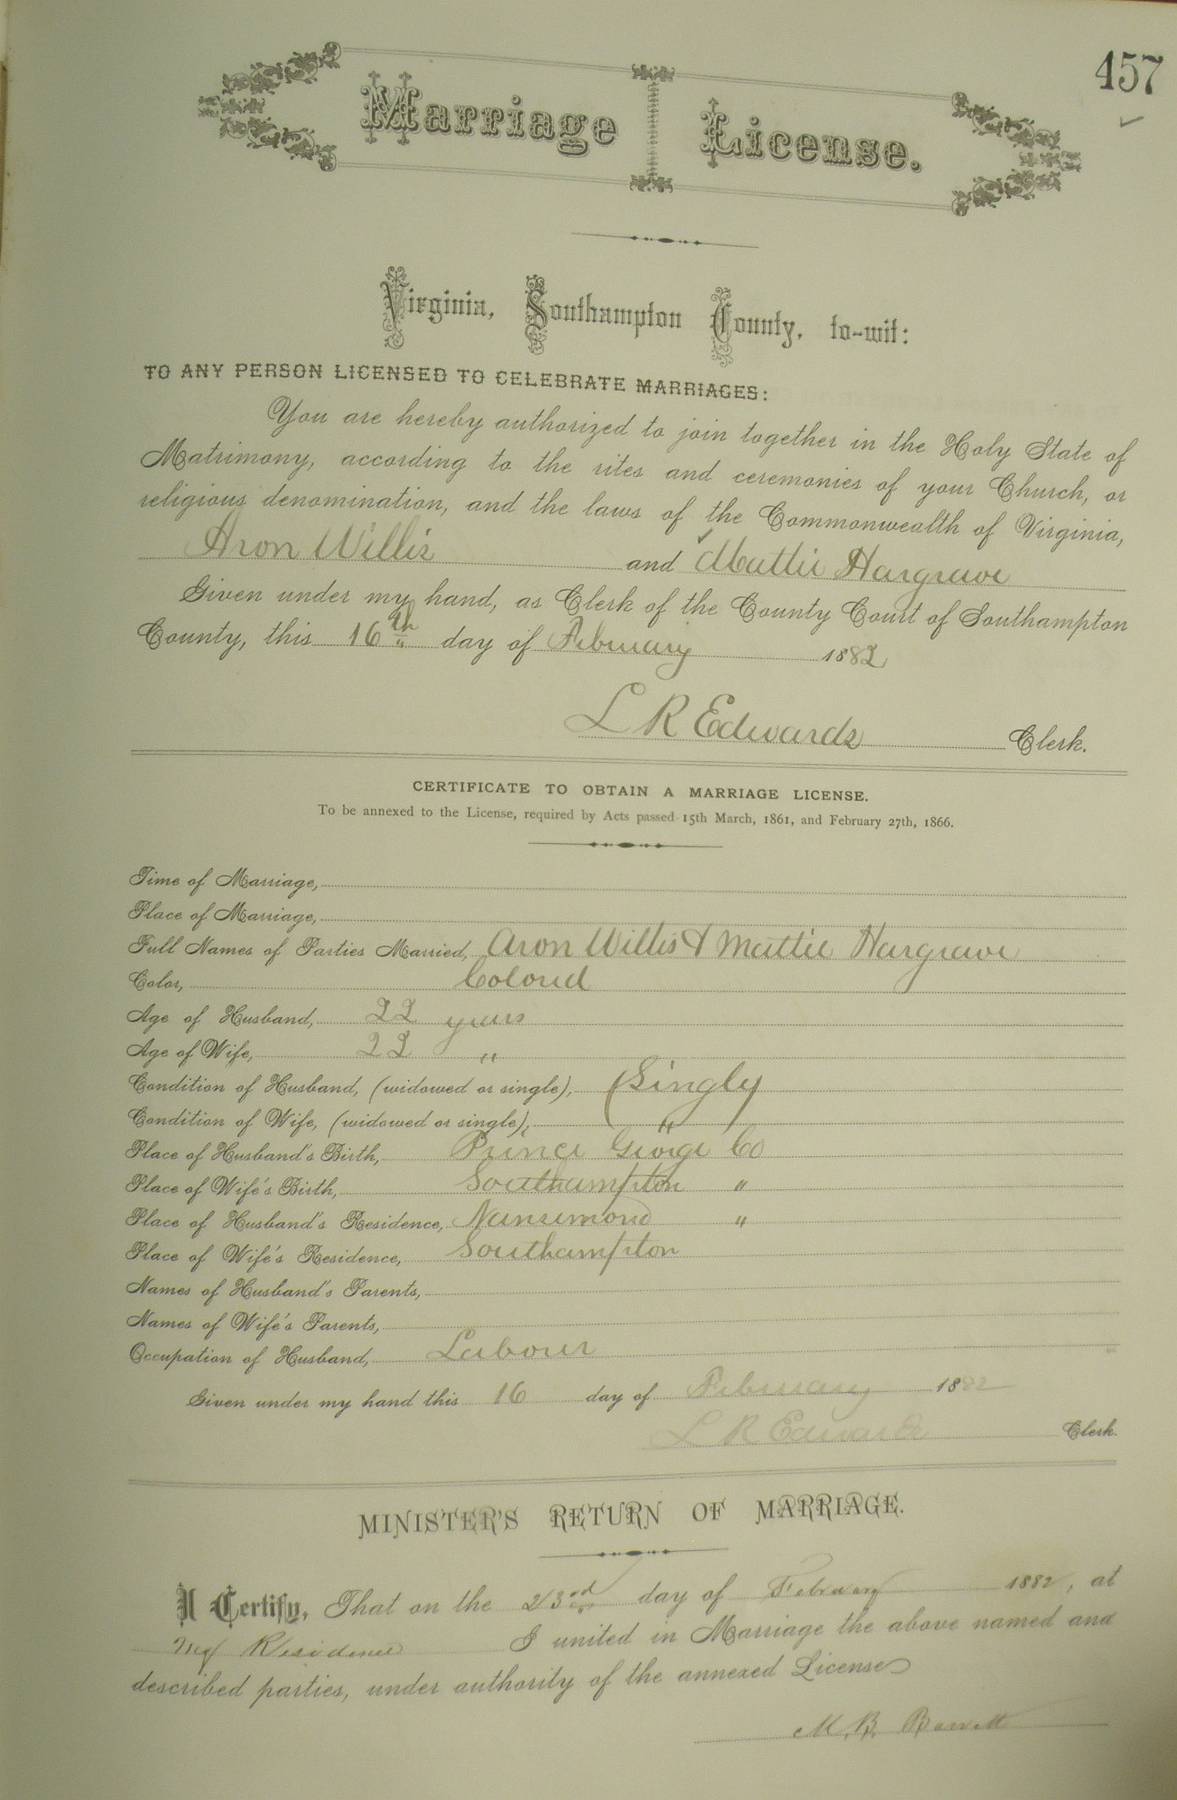 457
Marriage License.
Virginia, Southampton County, to-wit:
TO ANY PERSON LICENSED TO CELEBRATE MARRIAGES:
You are hereby authorized to join together in the Holy State of
Matrimony, according to the rites and ceremonies of your Church, or
religious denomination, and the laws of the Commonwealth of Virginia,
Aron Willis and Mattie Hargrave
Given under my hand, as Clerk of the County Court of Southampton
County, this 16th day of February 1882
L R Edwards Clerk.
CERTIFICATE TO OBTAIN A MARRIAGE LICENSE.
To be annexed to the License, required by Acts passed 15th March, 1861, and February 27th, 1866.
Time of Marriage,
Place of Marriage,
Full Names of Parties Married, Aron Willis & Mattie Hargrave
Color, Colored
Age of Husband, 22 years
Age of Wife, 22 "
Condition of Husband, (widowed or single), Singly
Condition of Wife, (widowed or single), "
Place of Husband's Birth, Prince George Co
Place of Wife's Birth, Southampton "
Place of Husband's Residence, Nansemond "
Place of Wife's Residence, Southampton
Names of Husband's Parents,
Names of Wife's Parents,
Occupation of Husband, Labour
Given under my hand this 16 day of February 1882
L R Edwards Clerk.
MINISTER'S RETURN OF MARRIAGE.
I Certify, That on the 23rd day of February 1882, at
my Residence I united in Marriage the above named and
described parties, under authority of the annexed License
M. B. Barrett